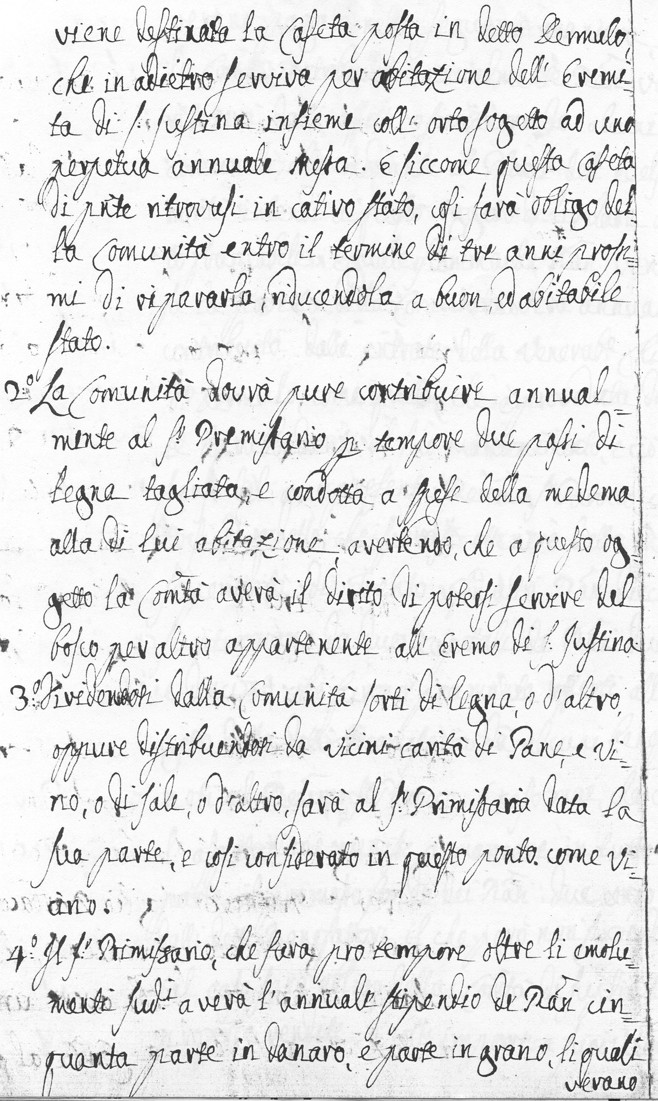 viene destinata la Caseta posta in detto Cermulo,
che in adietro serviva per abitazione dell' Eremi-
ta di S. Justina insieme coll' orto sogetto ad una
perpetua annuale Messa. E siccome questa Caseta
di pnte ritrovasi in cativo stato, così sarà obligo del
la Comunità entro il termine di tre anni prossi-
mi di ripararla, riducendola a buon ed abitabile
stato.
2.° La Comunità dovrà pure contribuire annual=
mente al S.r Premissario p. tempore due passi di
legna tagliata, e condotta a spese della medema
alla di lui abitazione, avertendo, che a questo og=
getto la Com̃tà averà il dirito di potersi servire del
bosco per altro appartenente all' Eremo di S. Justina
3.° Dividendosi dalla Comunità sorti di legna, o d'altro,
oppure distribuendosi da vicini carità de Pane, e Vi=
no, o di sale, o d'altro, sarà al S.r Primissario data la
sua parte, e così considerato in questo ponto come vi=
cino.
4.° Il S.r Primissario, che sarà pro tempore oltre li emolu=
menti sud.ti averà l'annuale stipendio de Rañ cin=
quanta parte in danaro, e parte in grano, li quali
verano